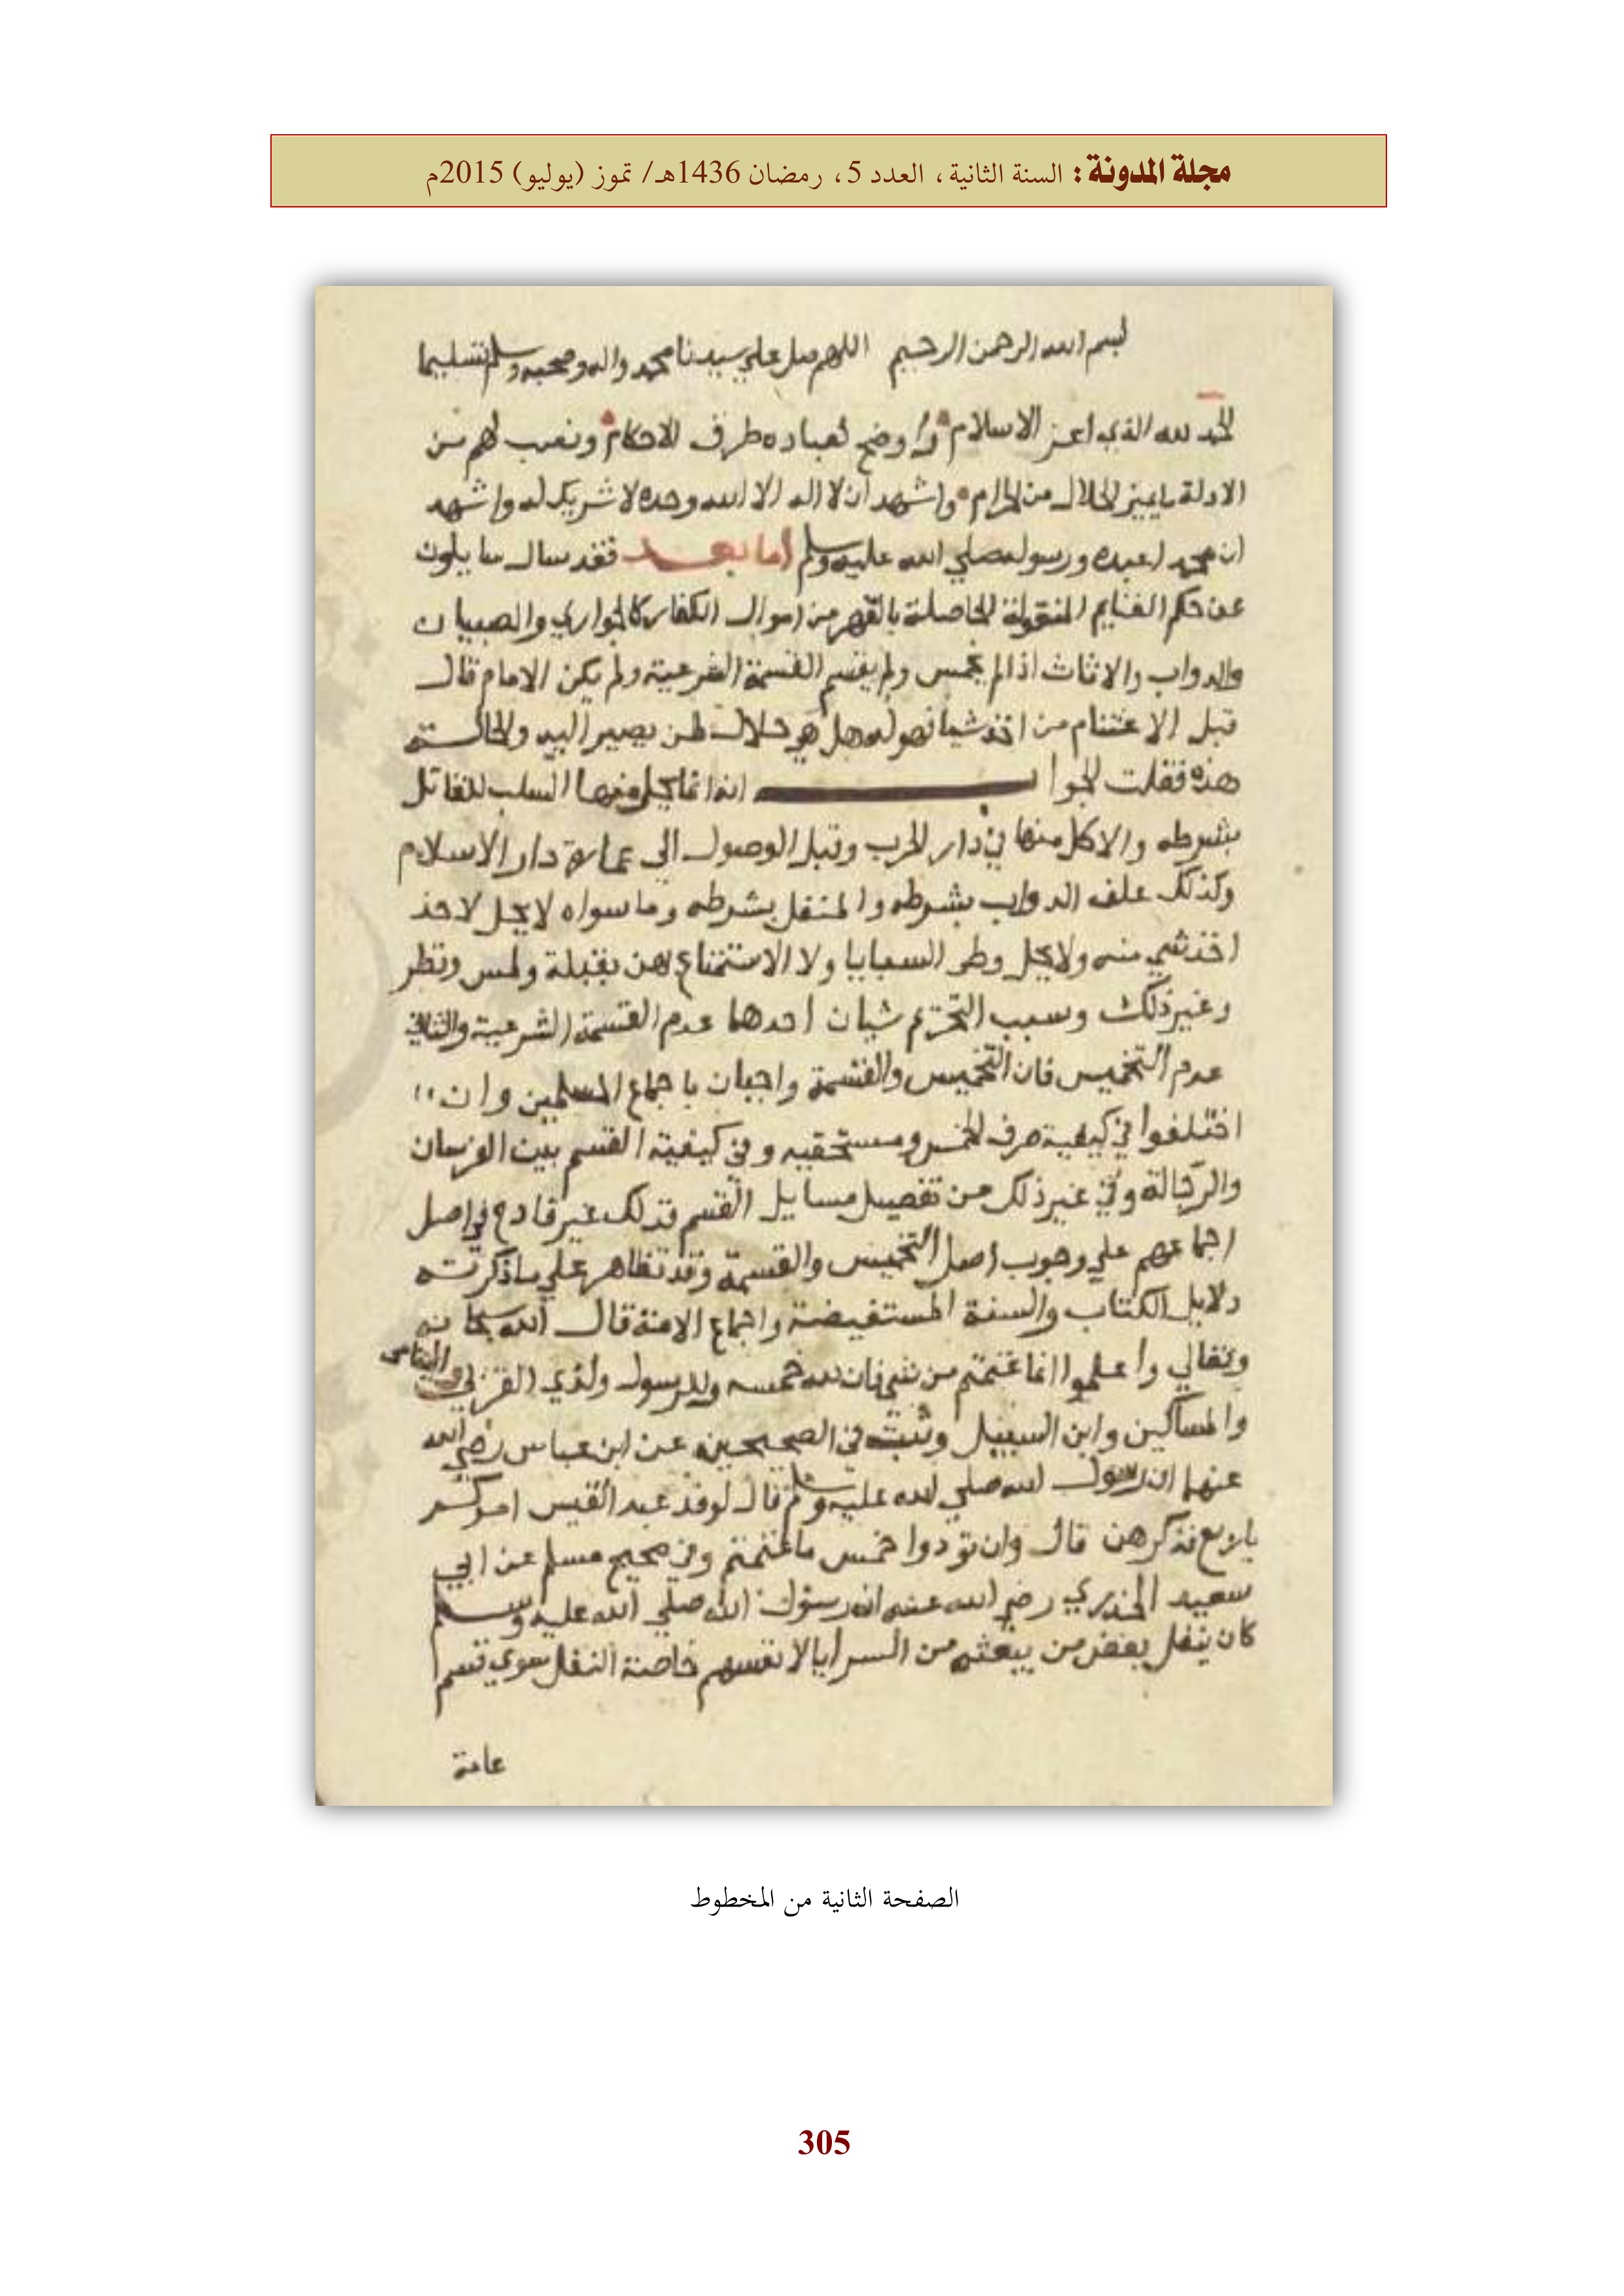 مجلة المدونة: السنة الثانية، العدد 5، رمضان 1436هـ/ تموز (يوليو) 2015م
بسم الله الرحمن الرحيم اللهم صل علي سيدنا محمد واله وصحبه وسلم تسليما
الحمد لله الذي اعز الاسلام واوضح لعباده طرف الاحكام ونصب لهم من
الادلة مايميز الحلال من الحرام واشهد ان لا اله الا الله وحده لا شريك له واشهد
ان محمدا عبده ورسوله صلي الله عليه وسلم اما بعد فقد سال سايلون
عن حكم الغنايم المنقولة الحاصلة بالقهر من اموال الكفار كالجواري والصبيان
والدواب والاثاث اذا لم يخمس ولم يقسم القسمة الشرعية ولم يكن الامام قال
قبل الاغتنام من اخذ شيا فهو له هل هو حلال لمن يصير اليه والحالــة
هذه فقلت الجواب انه انما يحل منها السلب للقاتل
بشرطه والاكل منها في دار الحرب وقبل الوصول الي عمارة دار الاسلام
وكذلك علف الدواب بشرطه والمنفل بشرطه وما سواه لا يحل لاحد
اخذ شي منه ولا يحل وطي السبايا ولا الاستمتاع بهن بقبلة ولمس ونظر
وغير ذلك وسبب التحريم شيان احدهما عدم القسمة الشرعية والثاني
عدم التخميس فان التخميس والقسمة واجبان باجماع المسلمين وان
اختلفوا في كيفية صرف الخمس ومستحقيه وفي كيفية القسم بين الفرسان
والرجالة وفي غير ذلك من تفصيل مسايل القسم فذلك غير قادح في اصل
اجماعهم علي وجوب اصل التخميس والقسمة وقد تظاهر علي ما ذكرته
دلايل الكتاب والسنة المستفيضة واجماع الامة قال الله سبحانه
وتعالي واعلموا انما غنمتم من شي فان لله خمسه وللرسول ولذي القربي واليتامى
والمساكين وابن السبيل وثبت في الصحيحين عن ابن عباس رضي الله
عنهما ان رسول الله صلي الله عليه وسلم قال لوفد عبد القيس امركم
باربع فذكرهن قال وان تودوا خمس ما غنمتم وفي صحيح مسلم عن ابي
سعيد الخدري رضي الله عنه ان رسول الله صلي الله عليه وسلم
كان ينفل بعض من يبعثه من السرايا لانفسهم خاصة النفل سوي قسم
عامة
الصفحة الثانية من المخطوط
305